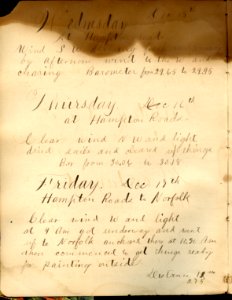 Wednesday Dec 15th
at Hampton Road
Wind S W
by afternoon wind to the W and
clearing Barometer from 29.65 to 29.95
Thursday. Dec 16th
at Hampton Roads.
Clear wind W and light
dried sails and
Bar from 30.02 to 30.18
Friday. Dec 17th
Hampton Roads to Norfolk
Clear wind W and light
at 9 Am got underway and went
up to Norfolk anchord there at 10.30 Am
then commenced to get things ready
for painting outside
Distance
275